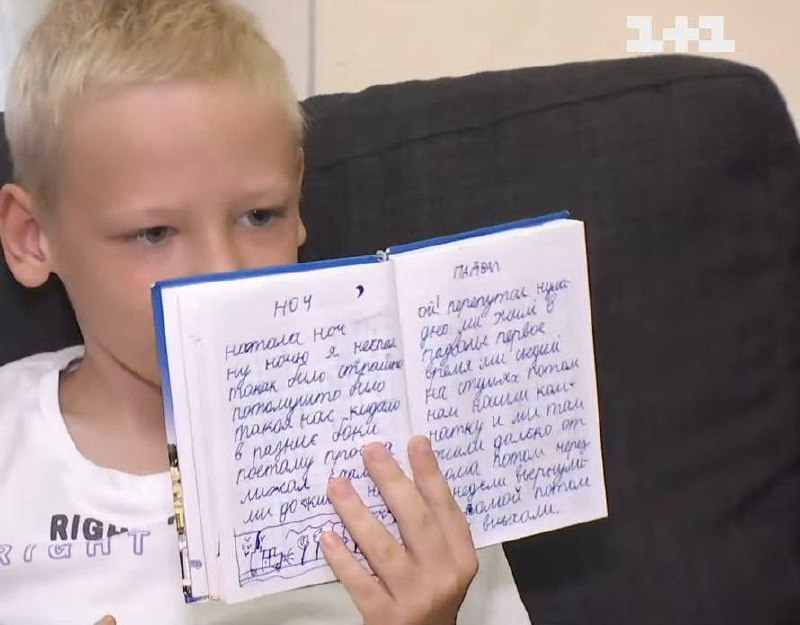 1+1
НОЧ
настала ноч
ну ночю я неспал
такак било страшно
потомушто било
такоя нас кидало
в разние боки
поетому проста
лижал
ми дожи
ПАДВАЛ
ой! перепутал нила
дно ми жили в
падвале первое
время ми сидели
на стулях потом
нам нашли ком-
натку и ми там
жили далеко от
дома потом через
недели вернули
дамой потом
виехали.
RIGHT
RIGHT